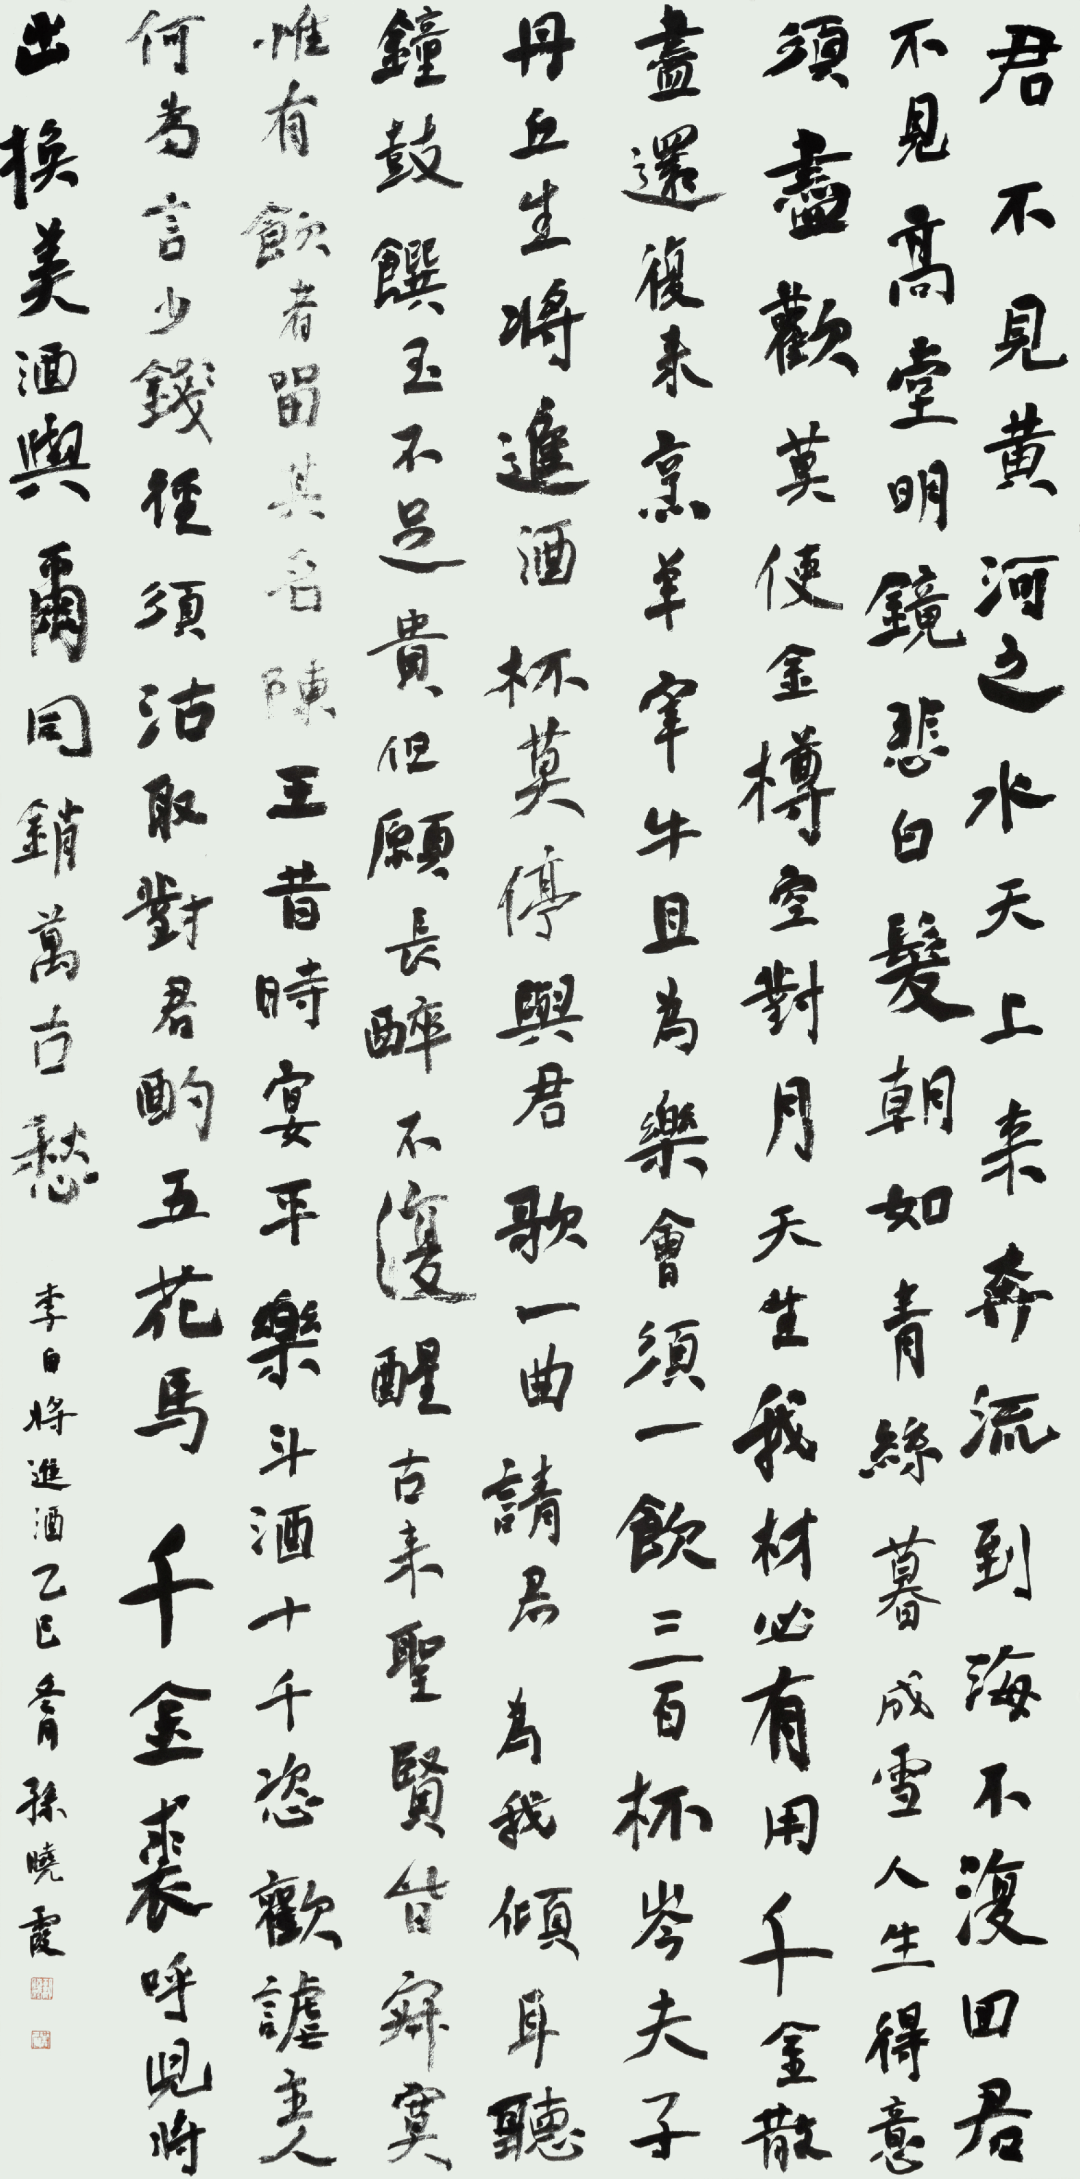 君不見黄河之水天上来奔流到海不復回君
不見高堂明鏡悲白髮朝如青絲暮成雪人生得意
須盡歡莫使金樽空對月天生我材必有用千金散
盡還復来烹羊宰牛且為樂會須一飲三百杯岑夫子
丹丘生將進酒杯莫停與君歌一曲請君為我傾耳聽
鐘鼓饌玉不足貴但願長醉不復醒古来聖賢皆寂寞
惟有飲者留其名陳王昔時宴平樂斗酒十千恣歡謔主人
何為言少錢徑須沽取對君酌五花馬千金裘呼兒將
出換美酒與爾同銷萬古愁
李白將進酒乙巳冬月孫曉霞